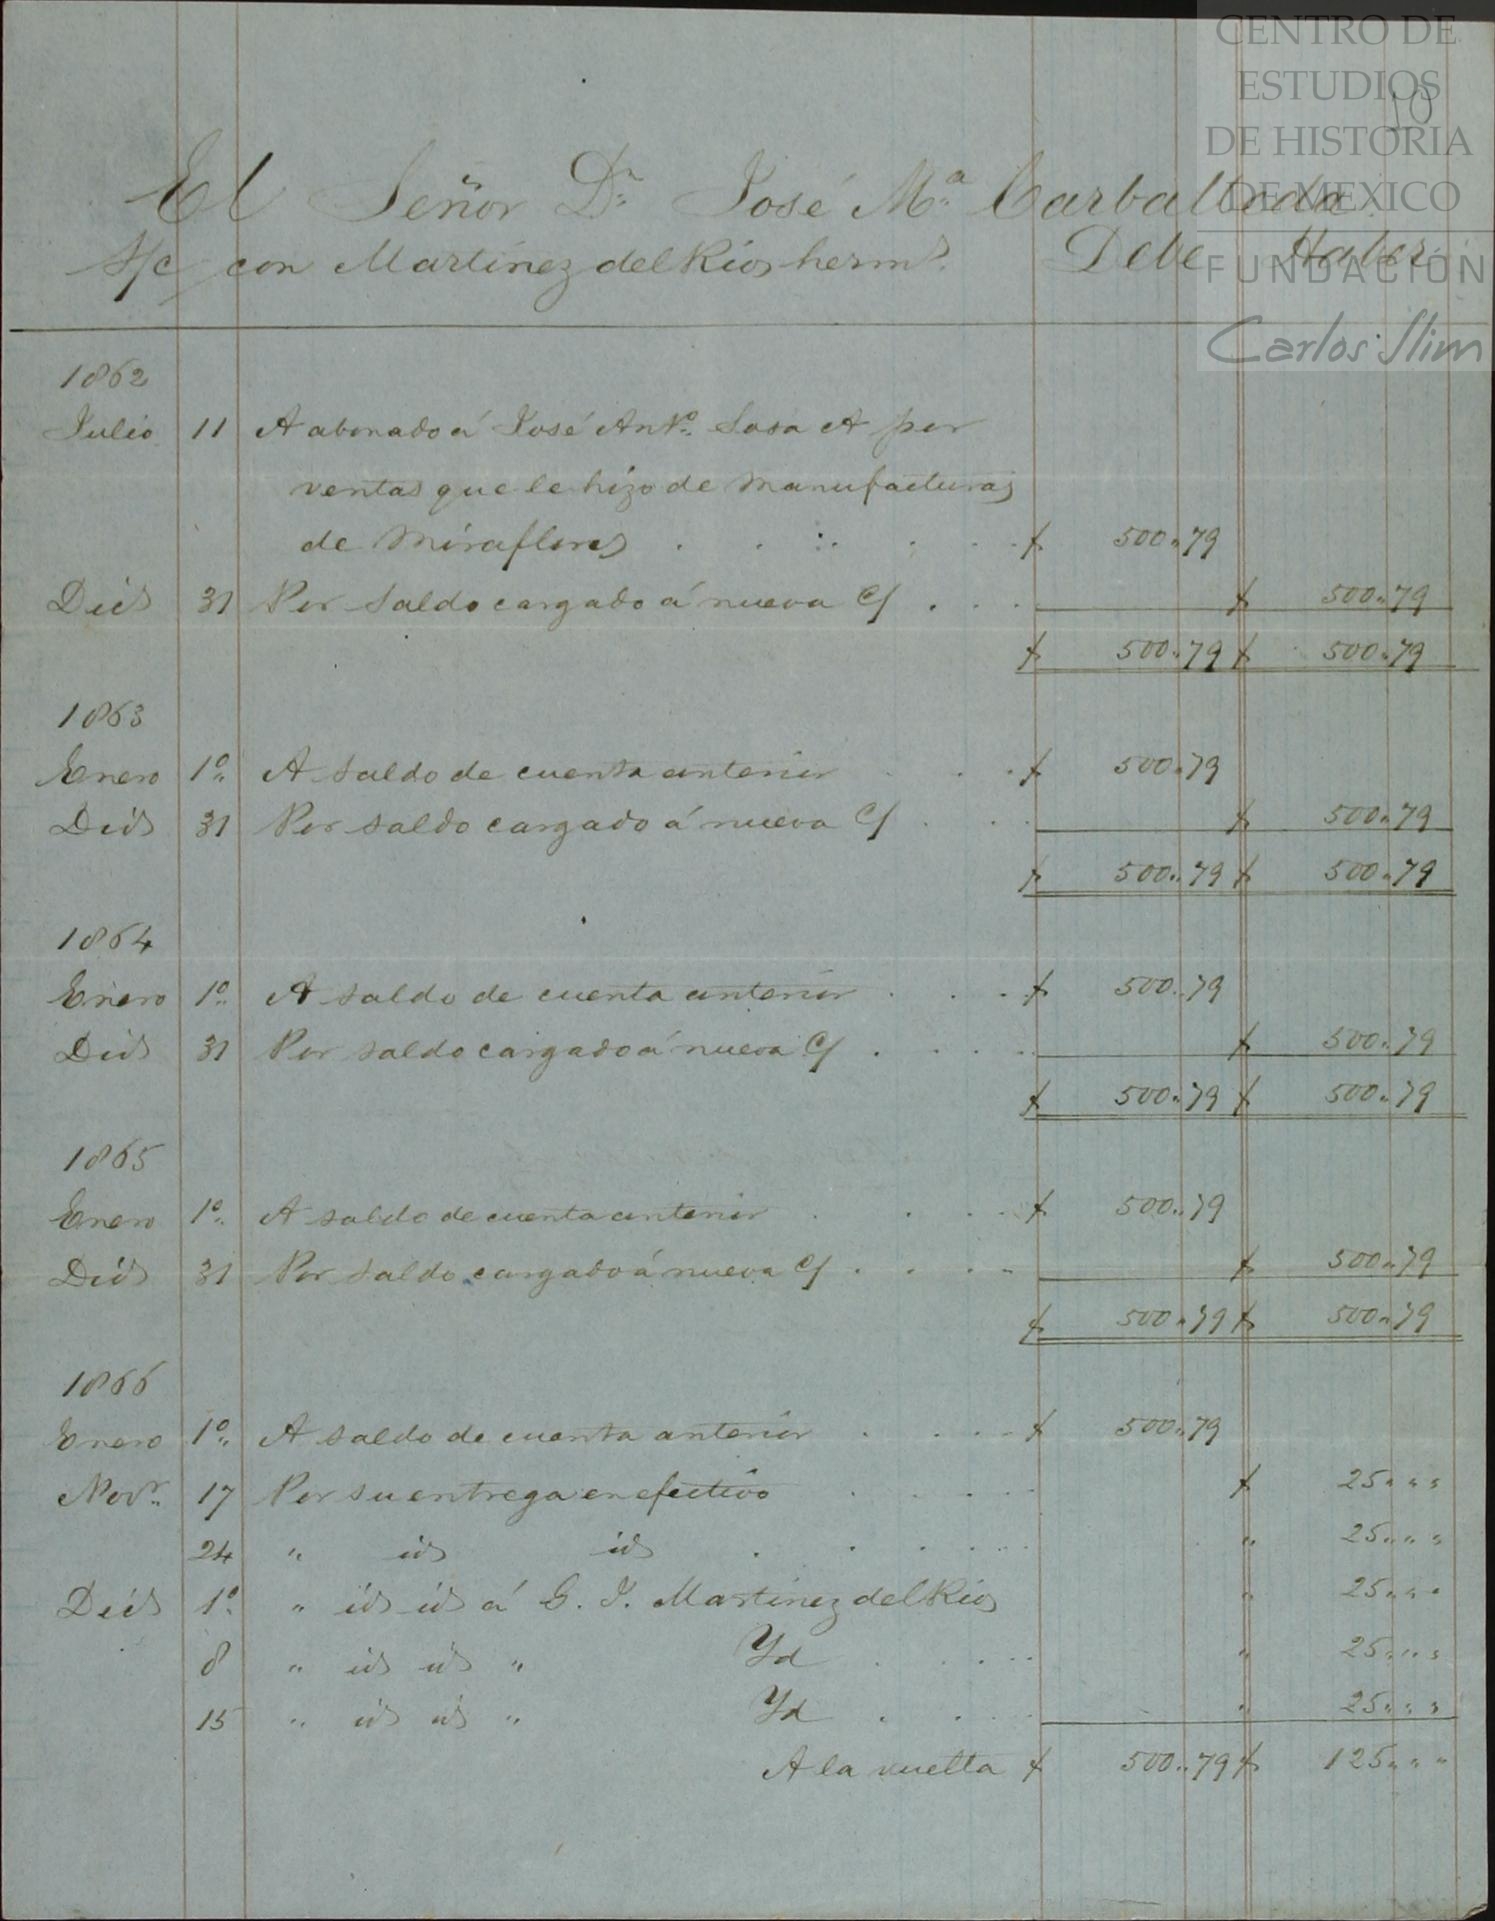 CENTRO DE
ESTUDIOS
DE HISTORIA
DE MEXICO
FUNDACIÓN
Carlos Slim
10
El Señor Dn José Ma. Carballeda
S/c con Martinez del Rio herms. Debe Haber
1862
Julio 11 A abonado á José Anto. Sosa A por
ventas que le hizo de manufacturas
de Miraflores . . . . . $ 500..79
Dic 31 Por saldo cargado á nueva C/ . . . $ 500..79
$ 500..79 $ 500..79
1863
Enero 1o. A saldo de cuenta anterior . . . $ 500..79
Dic 31 Por saldo cargado á nueva C/ . . . $ 500..79
$ 500..79 $ 500..79
1864
Enero 1o. A saldo de cuenta anterior . . . $ 500..79
Dic 31 Por saldo cargado á nueva C/ . . . . $ 500..79
$ 500..79 $ 500..79
1865
Enero 1o. A saldo de cuenta anterior . . . . $ 500..79
Dic 31 Por saldo cargado á nueva C/ . . . . $ 500..79
$ 500..79 $ 500..79
1866
Enero 1o. A saldo de cuenta anterior . . . . $ 500..79
Novr. 17 Por su entrega en efectivo . . . . $ 25.. " "
24 " id id . . . . . " 25.. " "
Dic 1o. " id id á G. J. Martinez del Rio " 25.. " "
8 " id id " Yd . . . . " 25.. " "
15 " id id " Yd . . . " 25.. " "
A la vuelta $ 500..79 $ 125.. " "